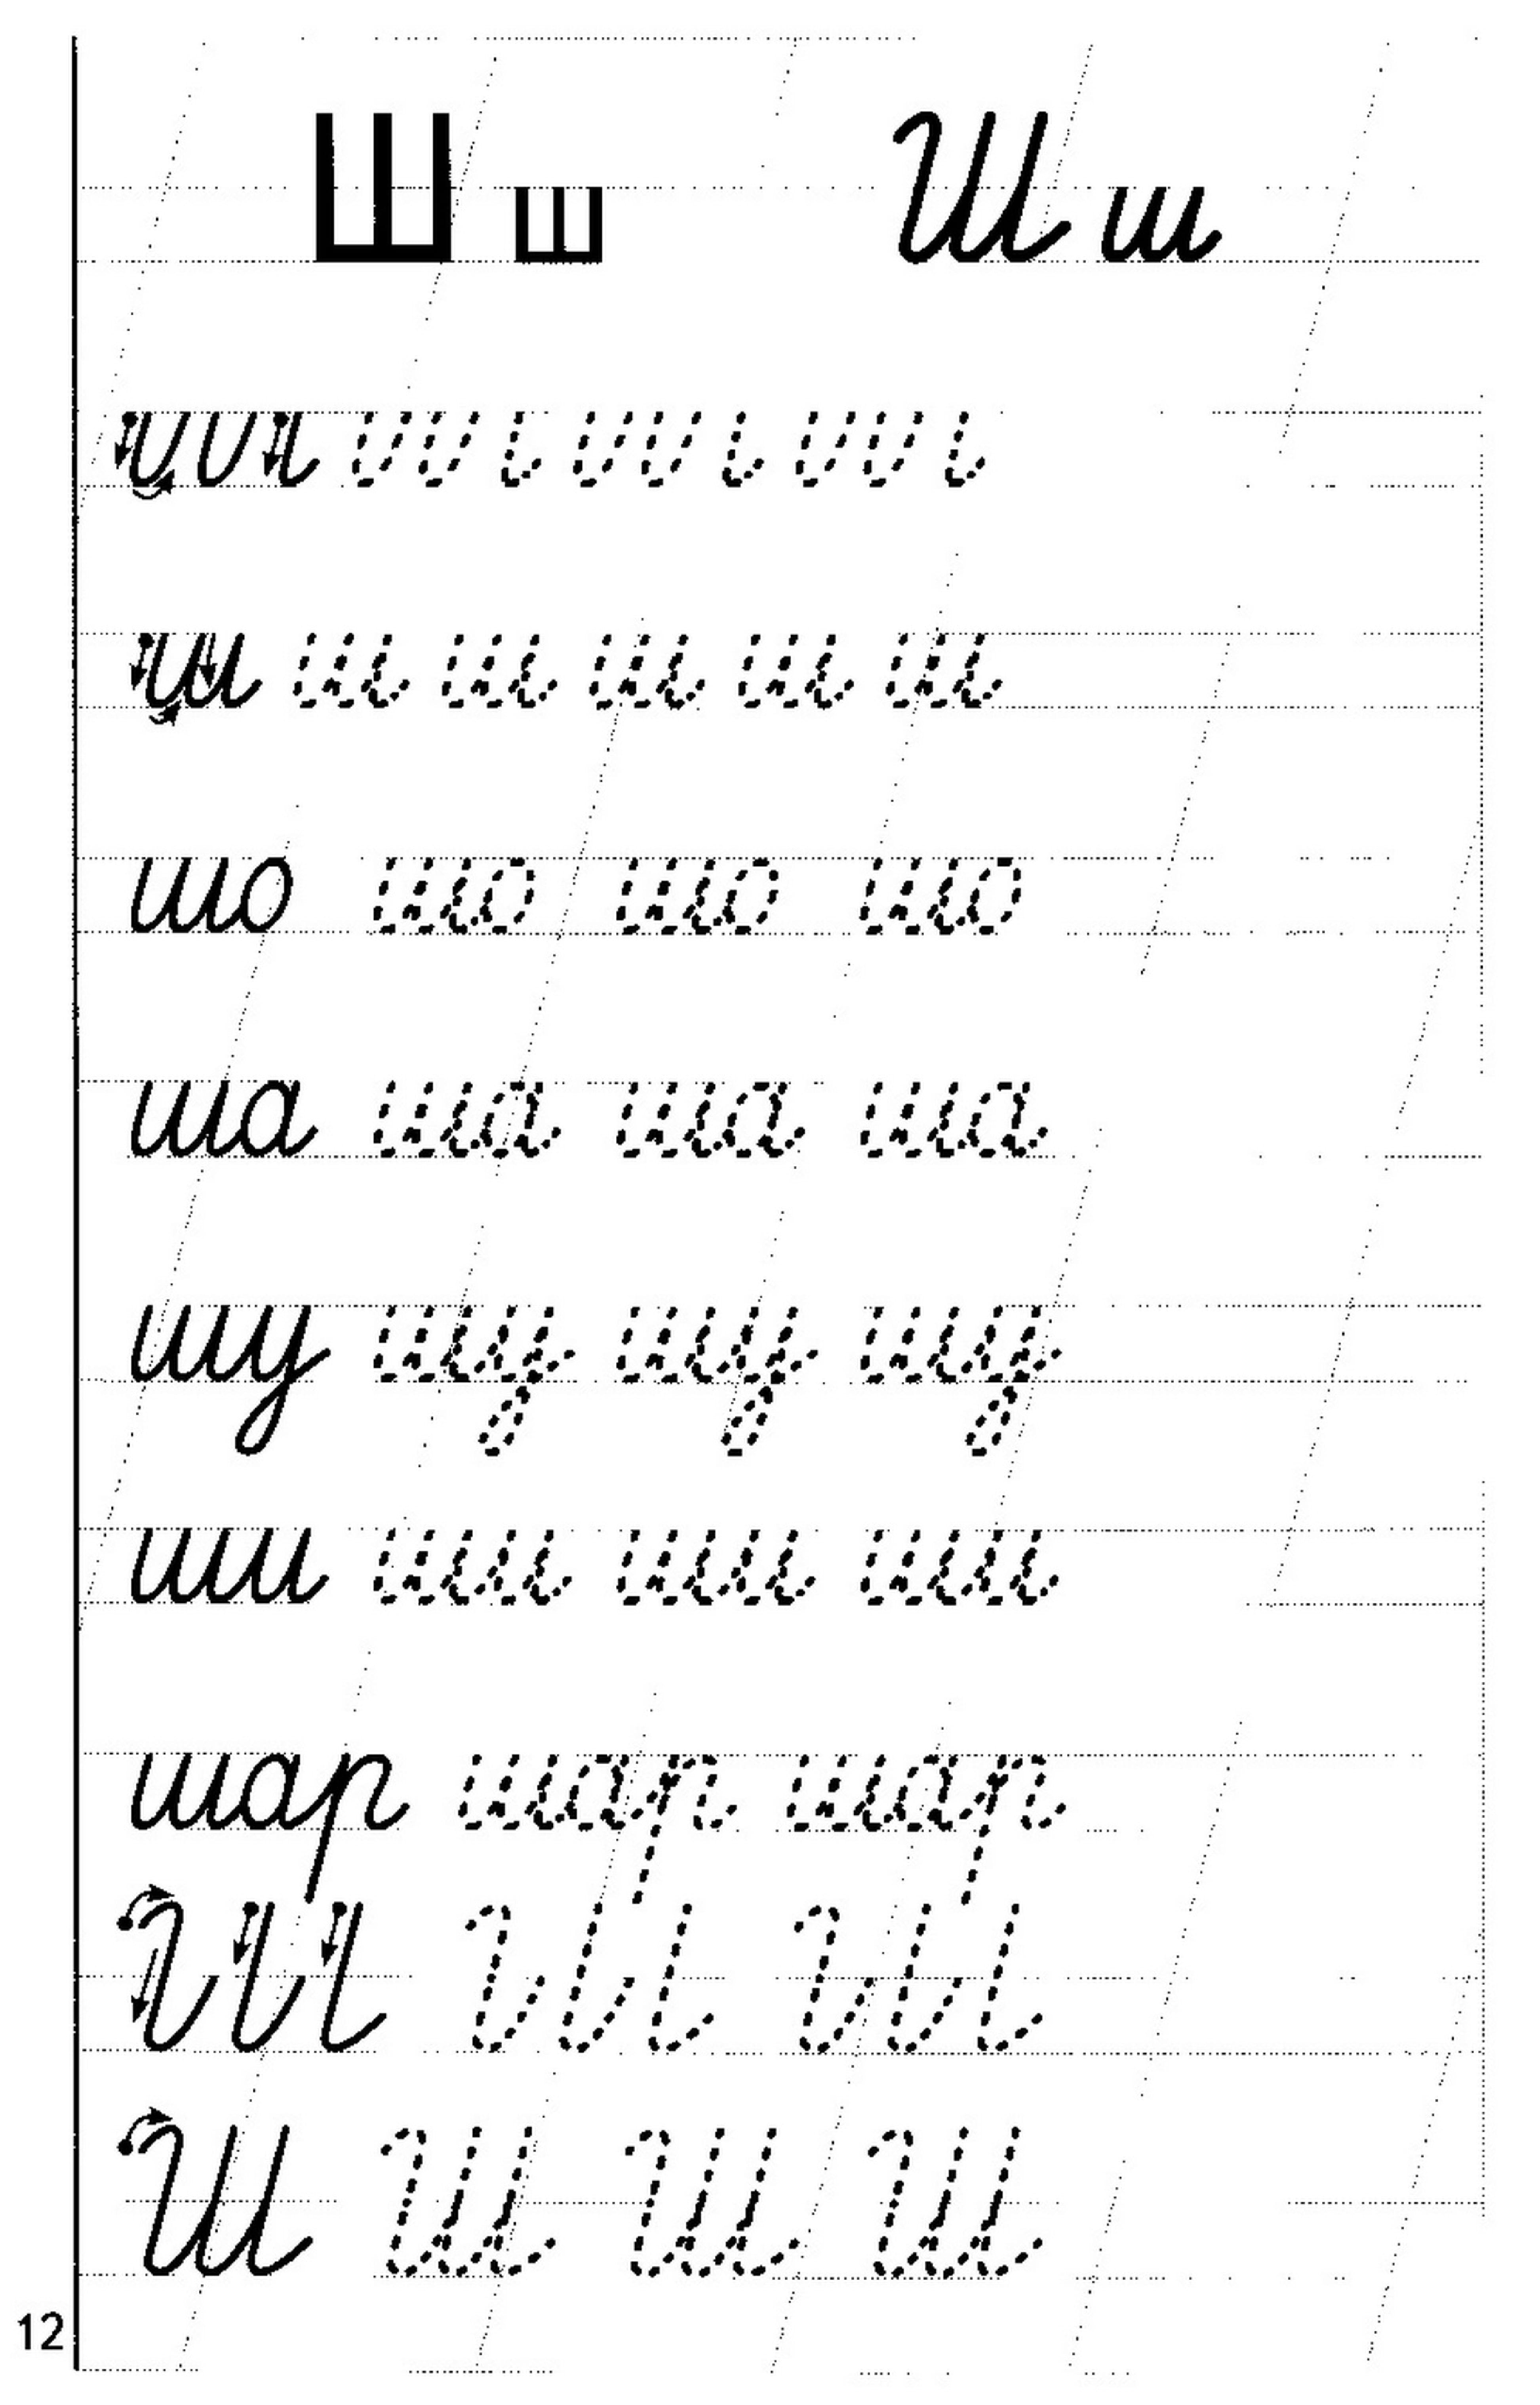 Ш ш Ш ш
ш ш ш ш ш ш
шо шо шо шо
ша ша ша ша
шу шу шу шу
ши ши ши ши
шар шар шар
Ш Ш Ш Ш
12